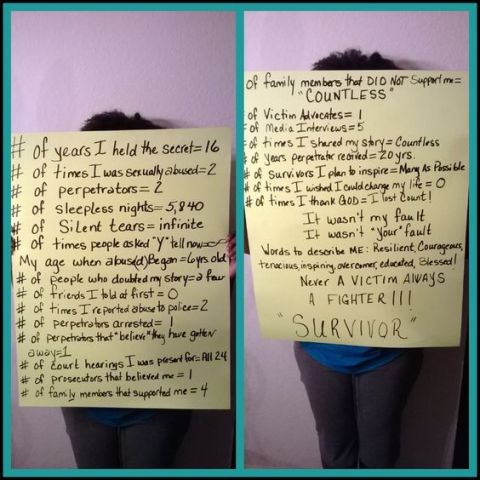 # of years I held the secret = 16
# of times I was sexually abused = 2
# of perpetrators = 2
# of sleepless nights = 5,840
# of Silent tears = infinite
# of times people asked "Y" tell now = ∞
My age when abus(d) Began = 6yrs old
# of people who doubted my story = a few
# of friends I told at first = 0
# of times I reported abuse to police = 2
# of perpetrators arrested = 1
# of perpetrators that "believe" they have gotten
away = 1
# of court hearings I was present for = All 24
# of prosecutors that believed me = 1
# of family members that supported me = 4
of family members that DID NOT Support me =
"COUNTLESS"
of Victim Advocates = 1
# of Media Interviews = 5
# of times I shared my story = Countless
# of years perpetrator received = 20 yrs.
# of Survivors I plan to inspire = Many As Possible
# of times I wished I could change my life = 0
# of times I thank GOD = I lost Count!
It wasn't my fault
It wasn't "your" fault
Words to describe ME: Resilient, Courageous,
tenacious, inspiring, overcomer, educated, Blessed!
Never A VICTIM ALWAYS
A FIGHTER!!!
"SURVIVOR"